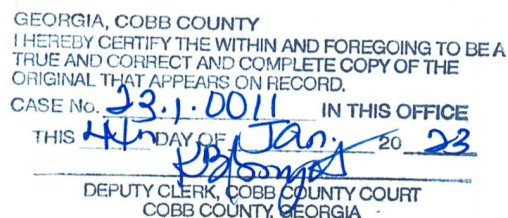 GEORGIA, COBB COUNTY
I HEREBY CERTIFY THE WITHIN AND FOREGOING TO BE A
TRUE AND CORRECT AND COMPLETE COPY OF THE
ORIGINAL THAT APPEARS ON RECORD.
CASE No. 23.1.0011 IN THIS OFFICE
THIS 4th DAY OF Jan. 20 23
DEPUTY CLERK, COBB COUNTY COURT
COBB COUNTY, GEORGIA